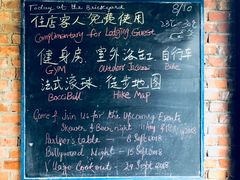 Today at the Brickyard
8/10
住店客人免费使用
Complimentary for Lodging Guest
健身房、室外浴缸、自行车
GYM Outdoor Jacuzzi Bike
法式滚球 徒步地图
Bocci Ball Hike Map
Come & Join us for the Upcoming Events
Skewer & Beer night
Farmer's table - 8 Sept 2018
Bollywood Night - 15 Sept 2018
Village Cookout - 29 Sept 2018